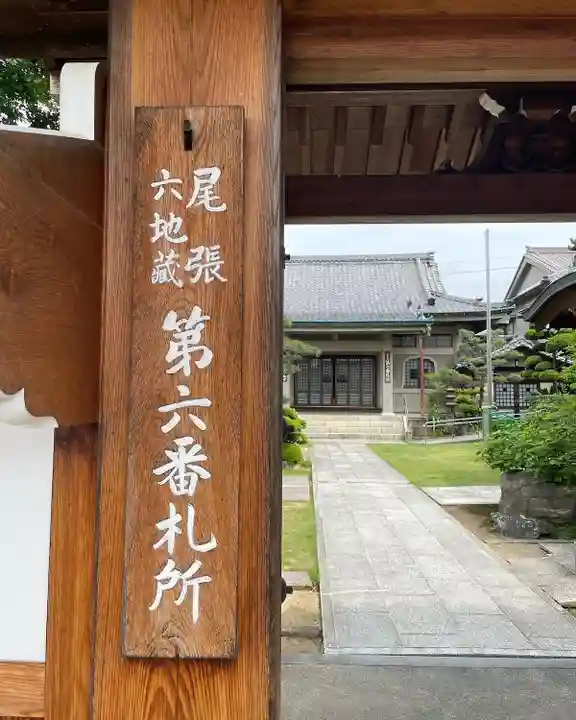 尾張
六地蔵
第六番札所